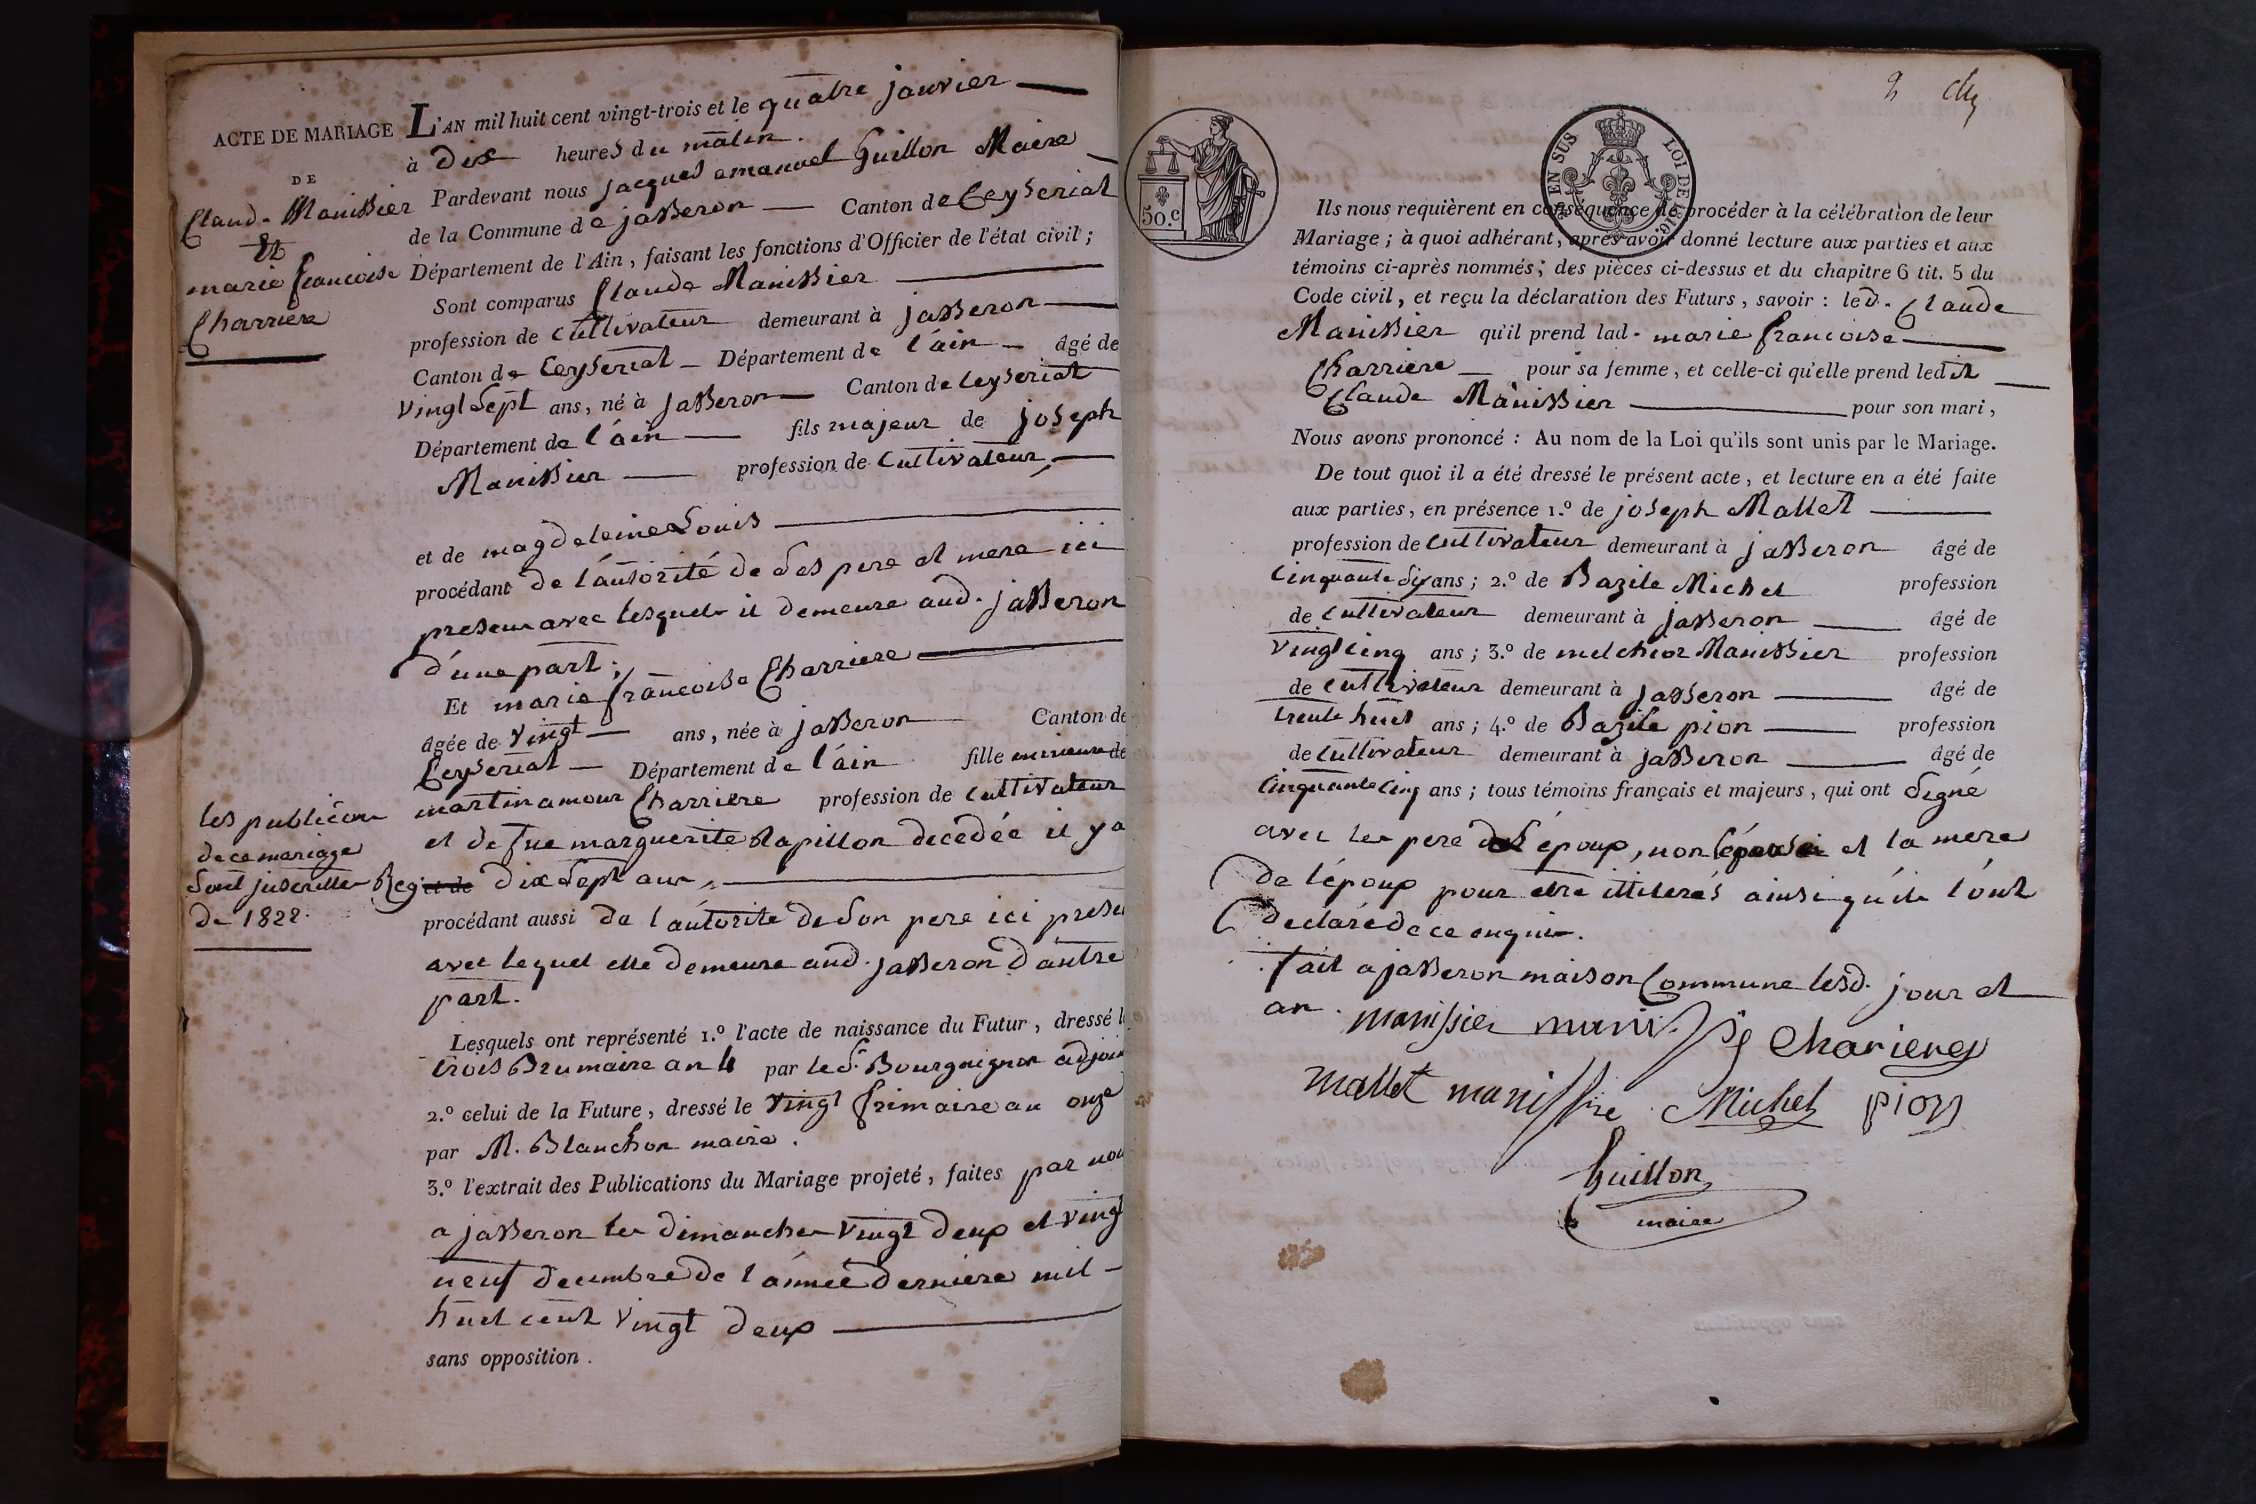 ACTE DE MARIAGE
DE
Claude Manissier
Et
marie francoise
Charriere
L'AN mil huit cent vingt-trois et le quatre janvier
à dix heures du matin.
Pardevant nous jacques emanuel Guillon Maire
de la Commune de jasseron Canton de Ceyseriat
Département de l'Ain, faisant les fonctions d'Officier de l'état civil ;
Sont comparus Claude Manissier
profession de cultivateur demeurant à jasseron
Canton de Ceyseriat Département de l'ain âgé de
vingt sept ans, né à jasseron Canton de Ceyseriat
Département de l'ain fils majeur de joseph
Manissier profession de cultivateur,
et de magdeleine Louis
procédant de l'autorité de ses pere et mere ici
presens avec lesquels il demeure aud. jasseron
d'une part;
Et marie francoise Charriere
âgée de vingt ans, née à jasseron Canton de
Ceyseriat Département de l'ain fille mineure de
martin amour Charriere profession de cultivateur
et de fue marguerite Rapillon decedée il y a
et de dix sept ans,
procédant aussi de l'autorite de son pere ici presen
avec lequel elle demeure aud. jasseron d'autre
part.
les publicons
de ce mariage
sont juscrittes Reg
de 1822.
Lesquels ont représenté 1.º l'acte de naissance du Futur, dressé le
trois Brumaire an 4 par le Sr. Bourguignon adjoin
2.º celui de la Future, dressé le vingt frimaire an onze
par M. Blanchon maire.
3.º l'extrait des Publications du Mariage projeté, faites par nou
a jasseron les dimanches vingt deux et vingt
neuf decembre de l'année derniere mil
huit cent vingt deux
sans opposition.
2
50.c
EN SUS
LOI DE 1816.
Ils nous requièrent en conséquence de procéder à la célébration de leur
Mariage ; à quoi adhérant, après avoir donné lecture aux parties et aux
témoins ci-après nommés ; des pièces ci-dessus et du chapitre 6 tit. 5 du
Code civil, et reçu la déclaration des Futurs, savoir : led. Claude
Manissier qu'il prend lad. marie francoise
Charriere pour sa femme, et celle-ci qu'elle prend ledit
Claude Manissier pour son mari,
Nous avons prononcé : Au nom de la Loi qu'ils sont unis par le Mariage.
De tout quoi il a été dressé le présent acte, et lecture en a été faite
aux parties, en présence 1.º de joseph Mallet
profession de cultivateur demeurant à jasseron âgé de
cinquante six ans ; 2.º de Bazile Michel profession
de cultivateur demeurant à jasseron âgé de
vingt cinq ans ; 3.º de melchior Manissier profession
de cultivateur demeurant à jasseron âgé de
trente huit ans ; 4.º de Bazile pion profession
de cultivateur demeurant à jasseron âgé de
cinquante cinq ans ; tous témoins français et majeurs, qui ont signé
avec les pere de l'époux, non l'épouse et la mere
de l'époux pour etre illiterés ainsi qu'ils l'ont
declaré de ce enquis.
fait a jasseron maison Commune lesd. jour et
an.
manissier Chariere
mallet Michel pion
Guillon
maire